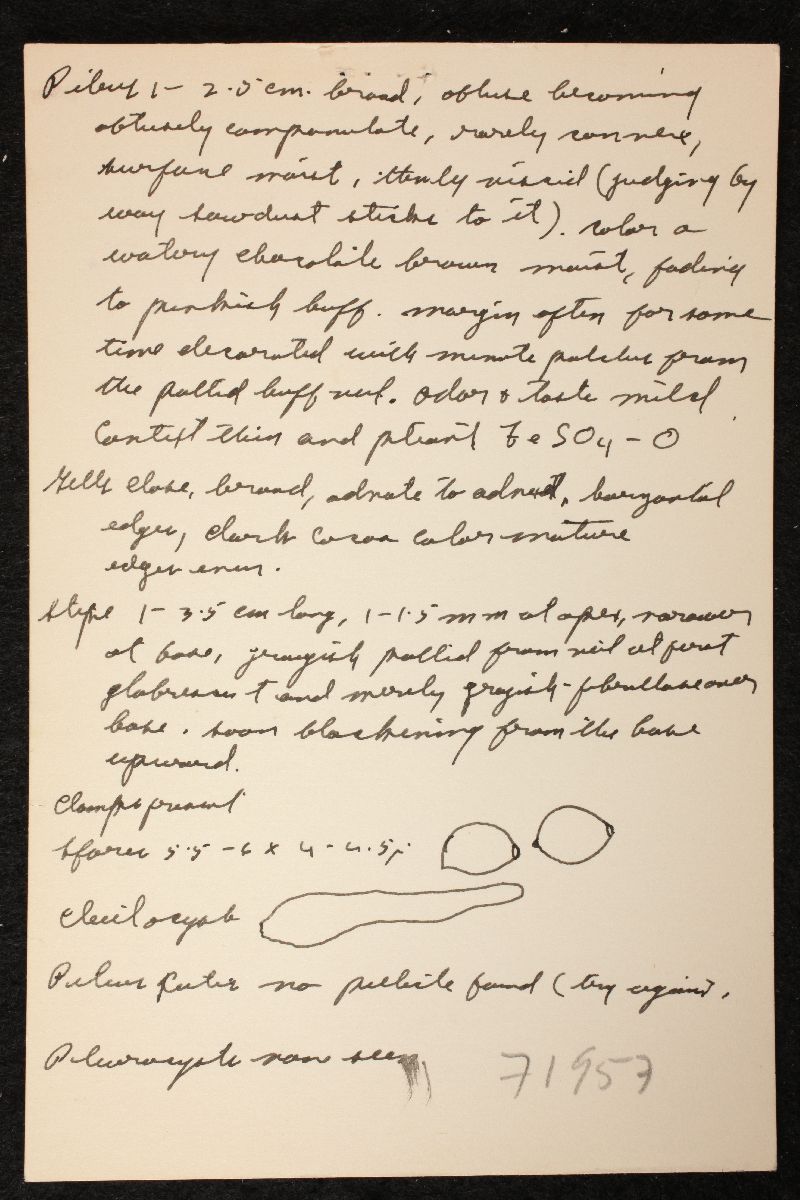 Pileus 1 - 2.5 cm. broad, obtuse becoming
obtusely campanulate, rarely convex,
surface moist, thinly viscid (judging by
way sawdust sticks to it). color a
watery chocolate brown moist, fading
to pinkish buff. margin often for some
time decorated with minute patches from
the pallid buff veil. odor & taste mild
Context thin and pliant FeSO4 - O
Gills close, broad, adnate to adnexed, horizontal
edges, dark cocoa color mature
edges even.
Stipe 1 - 3.5 cm long, 1 - 1.5 mm at apex, narrower
at base, grayish pallid from veil at first
glabrescent and merely grayish-fibrillose over
base. soon blackening from the base
upward.
Clamps present
Spores 5.5 - 6 x 4 - 4.5 µ
Cheilocysts
Pileus cutis no pellicle found (try again).
Pleurocysts none seen
71957